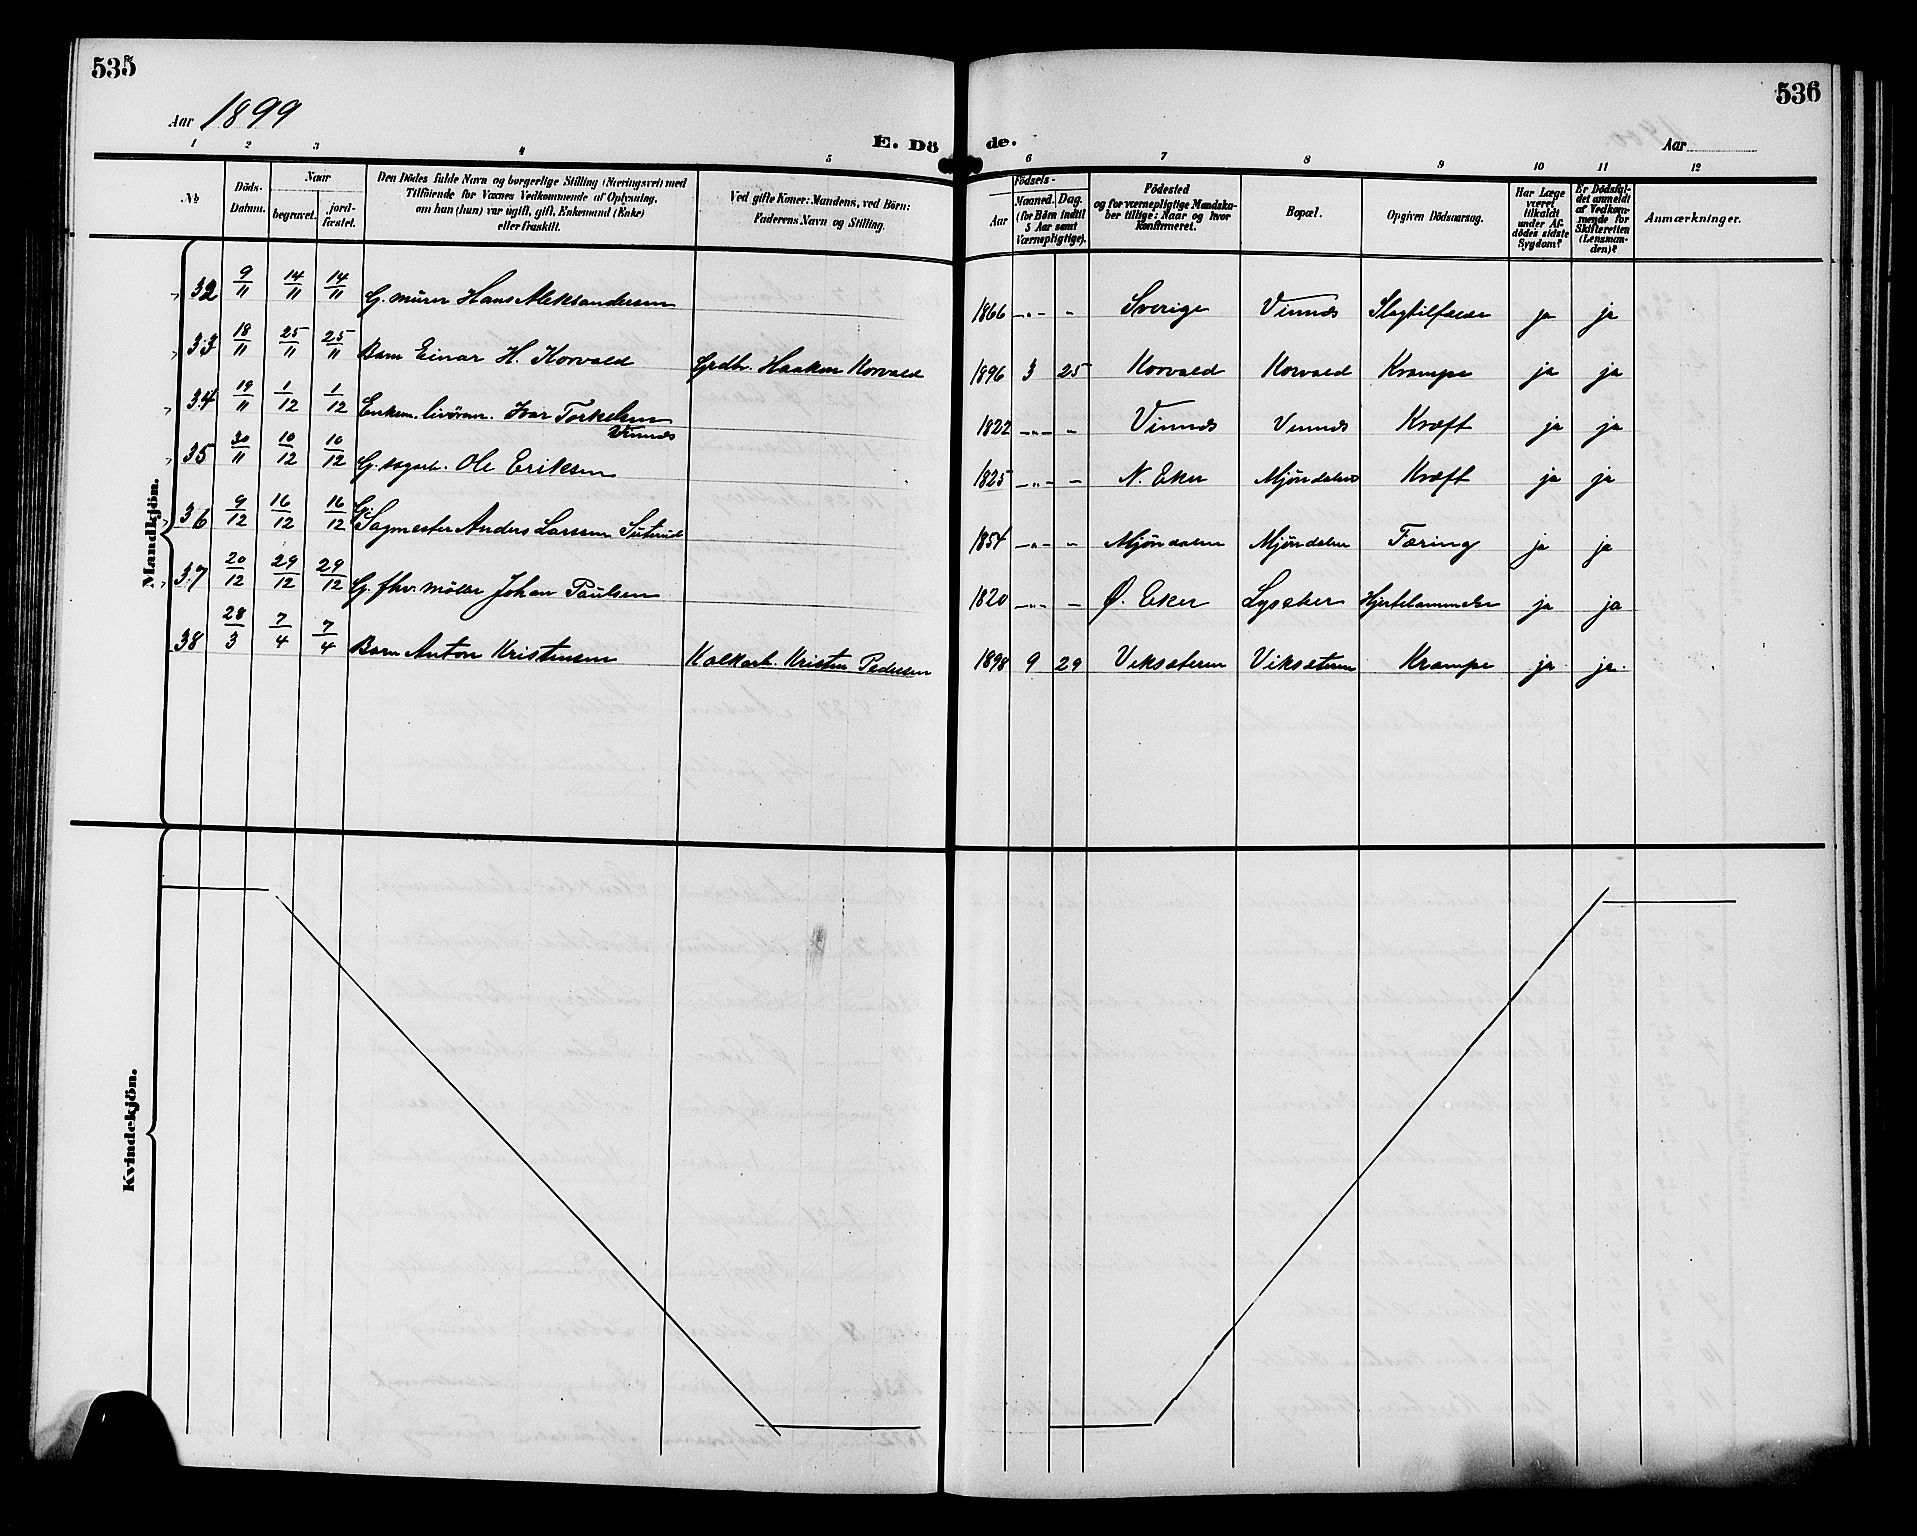 535
536
Aar 1899
E. Döde.
Aar
1 2 3 4 5 6 7 8 9 10 11 12
No.
Döds-Datum.
Naar
begravet.
jord-fæstet.
Den Dödes fulde Navn og borgerlige Stilling (Næringsvei) med
Tilföiende for Voxnes Vedkommende af Oplysning,
om han (hun) var ugift, gift, Enkemand (Enke)
eller fraskilt.
Ved gifte Koner: Mandens, ved Börn:
Faderens Navn og Stilling.
Födsels-
Aar
Maaned. Dag.
(for Börn indtil
5 Aar samt
Værnepligtige).
Födested
og for værnepligtige Mandska-
ber tillige: Naar og hvor
konfirmeret.
Bopæl.
Opgiven Dödsaarsag.
Har Læge
været
tilkaldt
under Af-
dödes sidste
Sygdom?
Er Dödsfal-
det anmeldt
af Vedkom-
mende for
Skifteretten
(Lensman-
den)?
Anmærkninger.
Mandkjön.
32 9/11 14/11 14/11 G. murer Hans Aleksandersen 1866 -„- „ Sverige Vinnæs Slagtilfælde ja ja
33 18/11 25/11 25/11 Barn Einar H. Korvald Grdbr. Haaken Korvald 1896 3 25 Korvald Korvald Krampe ja ja
34 19/11 1/12 1/12 Enkem. livöram. Ivar Torkelsen
Vinnæs 1822 -„- „ Vinnæs Vinnæs Kræft ja ja
35 30/11 10/12 10/12 G. sagarb. Ole Eriksen 1825 -„- - N. Eker Mjöndalen Kræft ja ja
36 9/12 16/12 16/12 G. Sagmester Anders Larssen 1854 -„- „ Mjöndalen Mjöndalen Tæring ja ja
37 20/12 29/12 29/12 G. fhv. möller Johan Paulsen 1820 -„- - Ø. Eker Lysaker Hjertelammelse ja ja
38 28/3 7/4 7/4 Barn Anton Kristensen Kalkarb. Kristen Pedersen 1898 9 29 Veksæteren Viksæteren Krampe ja ja.
Kvindekjön.